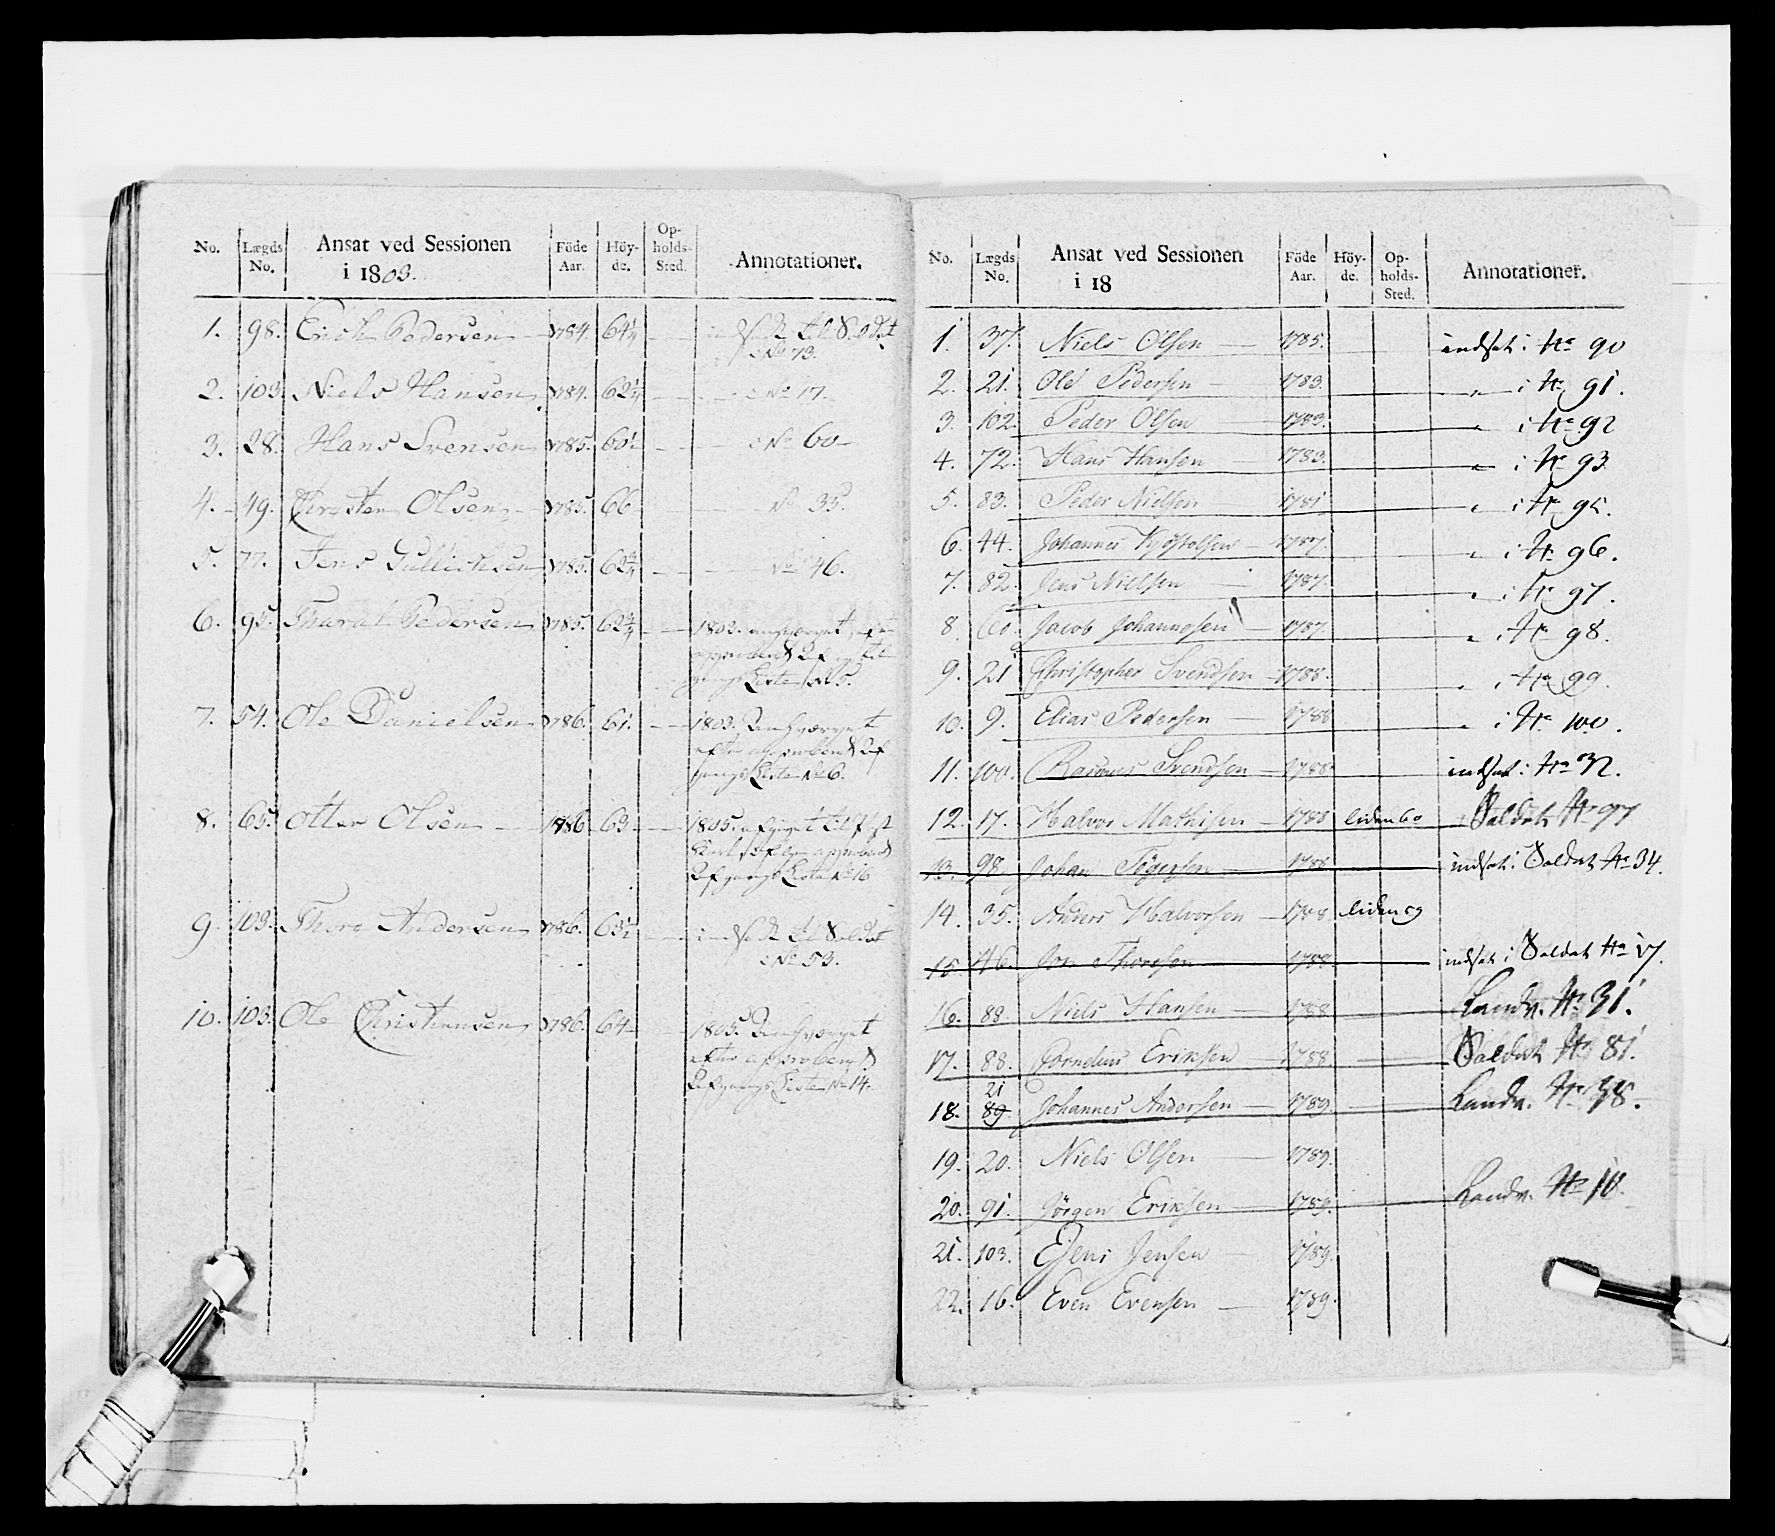 No. Lægds No. Ansat ved Sessionen i 1803. Föde Aar. Höyde. Opholds-Sted. Annotationer.
1. 98. Erich Pedersen 1784. 64¼ indsadt til Soldat
No 73.
2. 103. Niels Hansen 1784. 62¼ No 17.
3. 28. Hans Svensen 1785. 60½ No 60
4. 49. Christen Olsen 1785. 66 No 35.
5. 77. Jens Gullichsen 1785. 62¾ No 46.
6. 95. Tharal Pedersen 1785. 62¾ 1802.
approberet
Liste No 5.
7. 54. Ole Danielsen 1786. 61. 1803.
efter approberet
gangs Liste No 6.
8. 65. Otter Olsen 1786 63 1805. afgaaet til
approberet
Afgangs Liste No 16
9. 103. Thore Andersen 1786. 63½ indsadt til Soldat
No 53.
10. 103. Ole Christiansen 1786. 64 1805.
efter approberet
Afgangs Liste No 14.
No. Lægds No. Ansat ved Sessionen i 18 Föde Aar. Höyde. Opholds-Sted. Annotationer.
1. 37. Niels Olsen 1785. indsat i No 90
2. 21. Ole Pedersen 1783. " i No 91.
3. 102. Peder Olsen 1783. " i No 92
4. 72. Hans Hansen 1783. " i No 93
5. 83. Peder Nielsen 1781 " i No 95.
6. 44. Johannes Kjöstolsen 1787. " i No 96.
7. 82. Jens Nielsen 1787. " i No 97.
8. 60. Jacob Johannesen 1787. " i No 98.
9. 21 Christopher Svendsen 1788. " i No 99.
10. 9. Elias Pedersen 1788 " i No 100.
11. 100. Rasmus Svendsen 1788 indsat i No 32.
12. 17. Halvor Mathisen 1788 liden 60 Soldat No 97
13. 98. Johan 1788 indsat i Soldat No 34.
14. 35. Anders Halvorsen 1788. liden 59
15 46. Jon Thoresen 1788. indsat i Soldat No 17.
16. 88. Niels Hansen 1788 Landv. No 31.
17. 88. Cornelius Eriksen 1788 Soldat No 81.
21
18. 89. Johannes Andersen 1789. Landv. No 38.
19. 20. Niels Olsen 1789.
20. 91. Jörgen Eriksen 1789. Landv. No 10.
21. 103. Jens Jensen 1789.
22. 16. Even Evensen 1789.